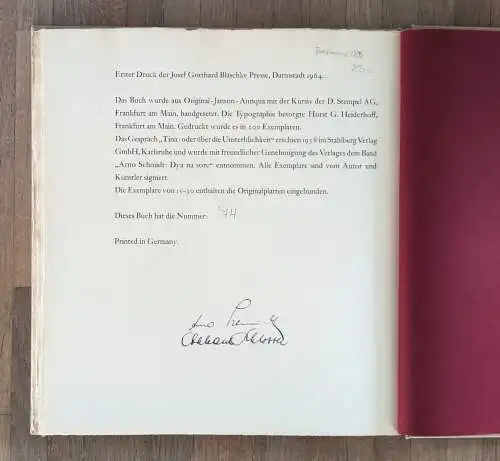 Erster Druck der Josef Gotthard Bläschke Presse, Darmstadt 1964
Das Buch wurde aus Original-Janson-Antiqua mit der Kursiv der D. Stempel AG,
Frankfurt am Main, handgesetzt. Die Typographie besorgte Horst G. Heiderhoff,
Frankfurt am Main. Gedruckt wurde es in 200 Exemplaren.
Das Gespräch „Tina · oder über die Unsterblichkeit“ erschien 1958 im Stahlberg Verlag
GmbH, Karlsruhe und wurde mit freundlicher Genehmigung des Verlages dem Band
„Arno Schmidt: Dya na sore“ entnommen. Alle Exemplare sind vom Autor und
Künstler signiert.
Die Exemplare von 15–30 enthalten die Originalplatten eingebunden.
Dieses Buch hat die Nummer: 74
Printed in Germany.